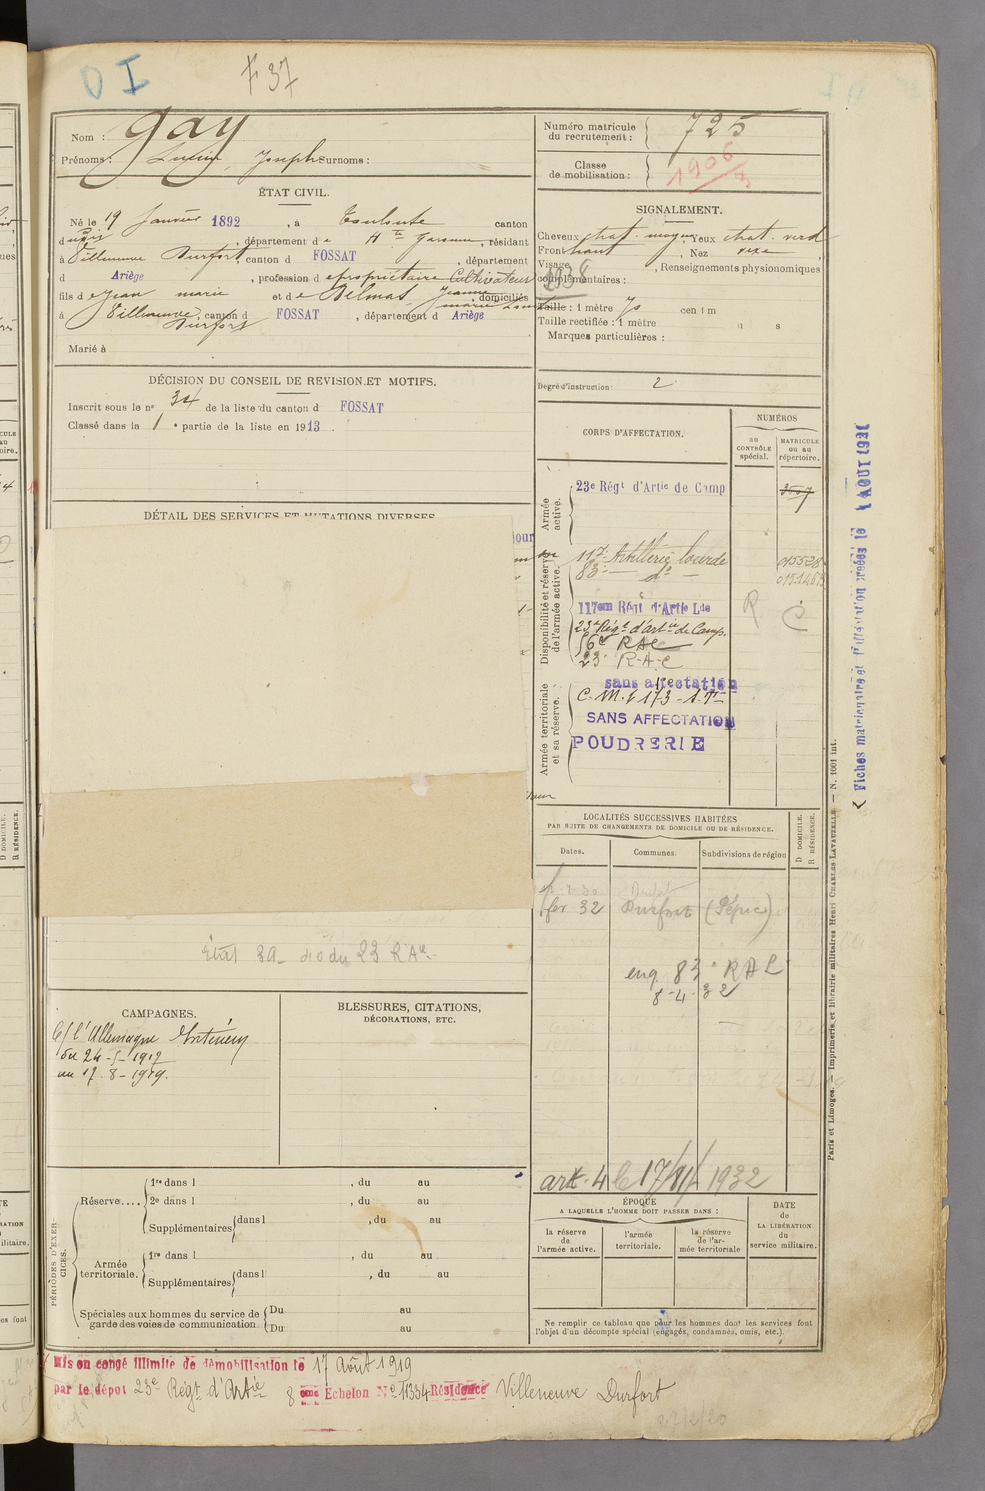 D I
F 37
Nom : Gay
Prénoms : Lucien, Joseph Surnoms :
Numéro matricule du recrutement : 725
Classe de mobilisation : 1906
ÉTAT CIVIL.
Né le 19 Janvier 1892, à Toulouse canton
dudit, département de Hte Garonne, résidant
à Villeneuve Durfort, canton d FOSSAT, département
d Ariège, profession de propriétaire Cultivateur
fils de Jean marie et de Delmas Jeanne, domiciliés
à Villeneuve Durfort, canton d FOSSAT, département d Ariège
Marié à
SIGNALEMENT.
Cheveux chat. moyen, Yeux chat. verd
Front haut, Nez
Visage , Renseignements physionomiques
complémentaires :
1938
Taille : 1 mètre 70 centim
Taille rectifiée : 1 mètre
Marques particulières :
Degré d'instruction : 2
DÉCISION DU CONSEIL DE REVISION ET MOTIFS.
Inscrit sous le n° 34 de la liste du canton d FOSSAT
Classé dans la 1e partie de la liste en 1913.
DÉTAIL DES SERVICES ET MUTATIONS DIVERSES
jour
CORPS D'AFFECTATION.
NUMÉROS
au CONTRÔLE spécial.
MATRICULE ou au répertoire.
Armée active.
23e Régt d'Artie de Camp
Disponibilité et réserve de l'armée active.
117e Artillerie lourde
83e — do —
117em Régt d'Artie Lde
R C
23e Régt d'artie de Camp.
56e RAC
23e R.A.C
Armée territoriale et sa réserve.
sans affectation
C.M.t 173
SANS AFFECTATION
POUDRERIE
Fiches matriculaire et d'affectation créées le 1 AOUT 1921
LOCALITÉS SUCCESSIVES HABITÉES
PAR SUITE DE CHANGEMENTS DE DOMICILE OU DE RÉSIDENCE.
Dates.
Communes.
Subdivisions de région
D DOMICILE.
R RÉSIDENCE.
fer 32 Durfort (Lépice)
enq 83e RAL
8-4-32
art. 4 le 17/11/1932
Etat 39 - 40 du 23 RAC.
CAMPAGNES.
C/ l'Allemagne Intérieur
du 24-5-1917
au 17-8-1919.
BLESSURES, CITATIONS,
DÉCORATIONS, ETC.
PÉRIODES D'EXERCICES.
Réserve....
1re dans l , du au
2e dans l , du au
Supplémentaires dans l , du au
Armée territoriale.
1re dans l , du au
Supplémentaires dans l , du au
Spéciales aux hommes du service de garde des voies de communication
Du au
Du au
ÉPOQUE
A LAQUELLE L'HOMME DOIT PASSER DANS :
la réserve de l'armée active.
l'armée territoriale.
la réserve de l'armée territoriale
DATE de LA LIBÉRATION du service militaire.
Ne remplir ce tableau que pour les hommes dont les services font
l'objet d'un décompte spécial (engagés, condamnés, omis, etc.).
Paris et Limoges. — Imprimerie et librairie militaires Henri CHARLES-LAVAUZELLE. — N. 1001 int.
Mis en congé illimité de démobilisation le 17 Août 1919
par le dépôt 23e Régt d'Artie 8 ème Echelon No 11334 Résidence Villeneuve Durfort